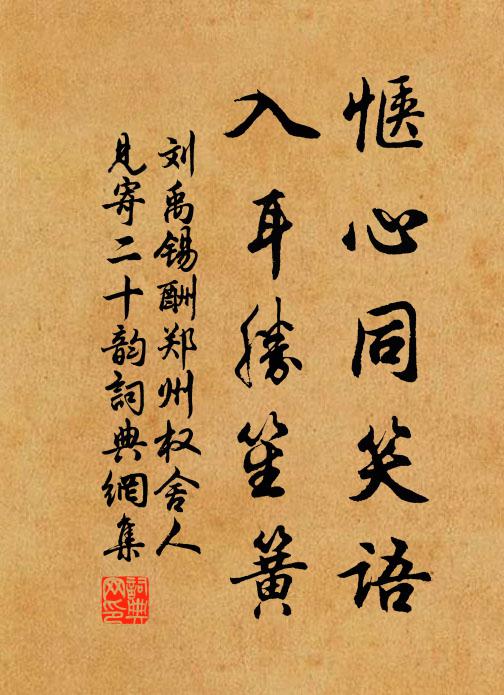 惬心同笑语
入耳勝笙簧
刘禹锡酬郑州权舍人
见寄二十韵詞典網集
詞典网印